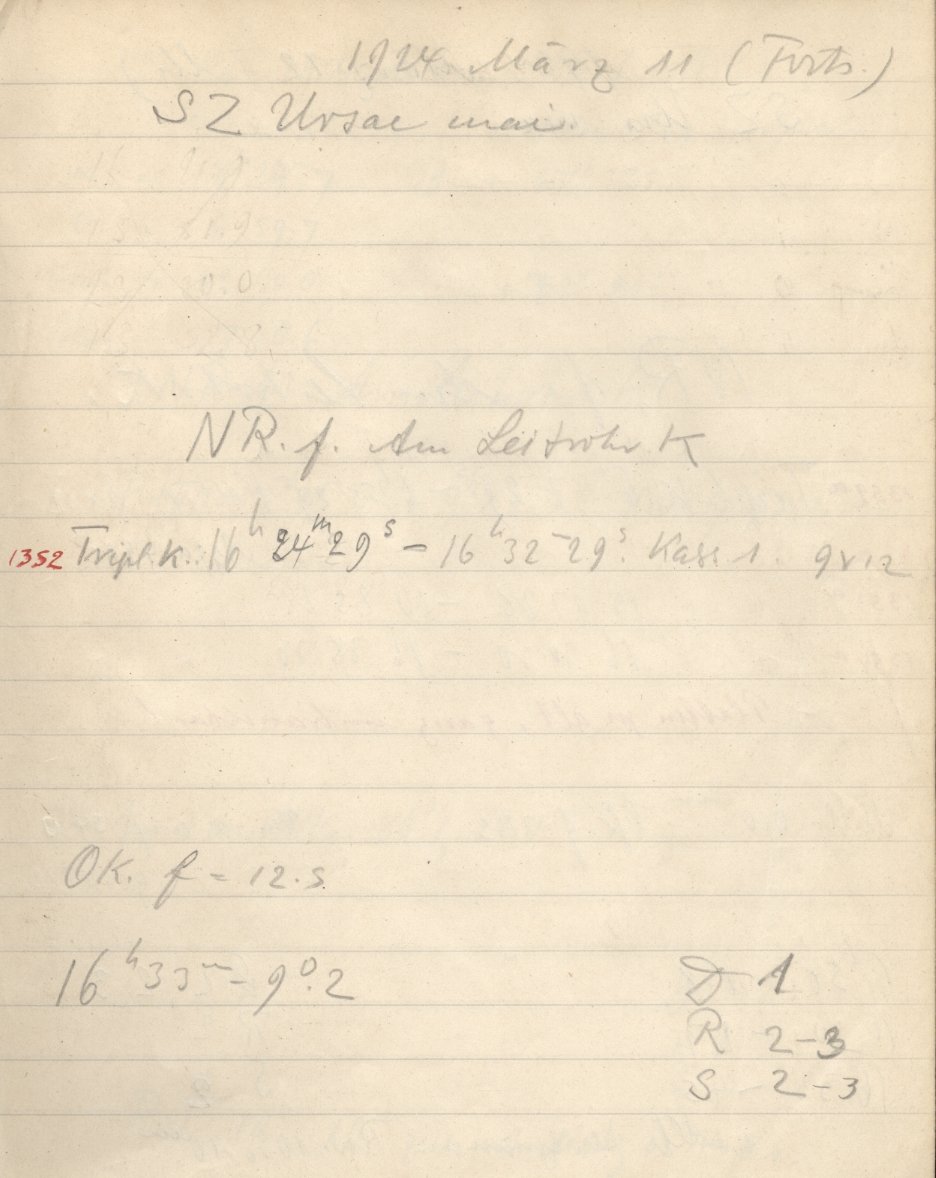 1924 März 11 (Forts.)
SZ Ursae mai.
NR. f. Am Leitrohr K
1352 Tripl. K. 16h 24m 29s - 16h 32m 29s. Kass. 1. 9v12
OK. f = 12.5
16h 33m - 9°.2
D 1
R 2-3
S 2-3